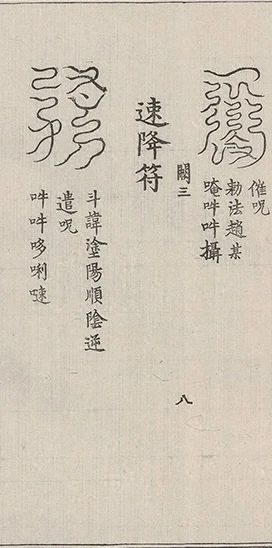 催呪
勅法趙某
唵吽吽攝
閣三
速降符
斗諱塗陽順陰逆
遣呪
吽吽哆唎𠻴
八